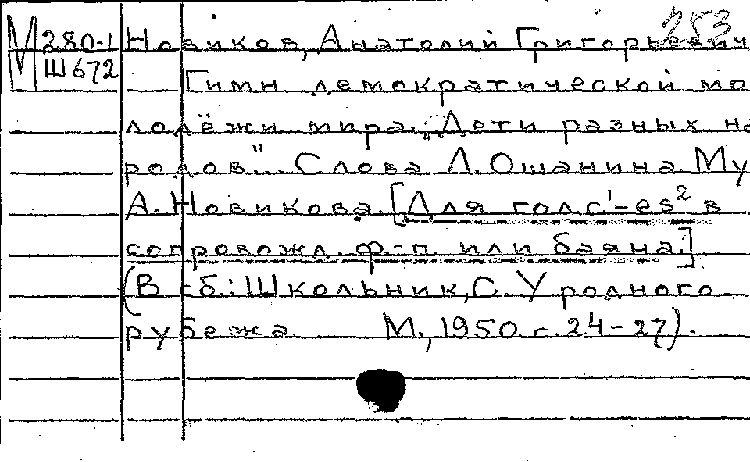 253
М 280-1 Новиков, Анатолий Григорьевич
Ш 672
Гимн демократической мо
лодёжи мира. „Дети разных на
родов". Слова Л. Ошанина. Му
А. Новикова. [Для голс'-es² в
сопровожд. ф.-п. или баяна.]
(В сб.: Школьник, С. У родного
рубежа М., 1950 г. 24-27).